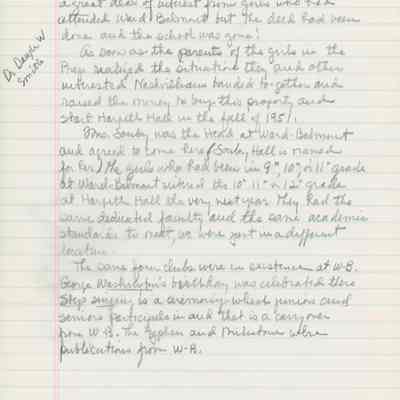 a great deal of interest from girls who had
attended Ward Belmont but the deed had been
done and the school was gone!
Dr. Daugh W
Smith
As soon as the parents of the girls in the
Prep realized the situation they and other
interested Nashvillians banded together and
raised the money to buy this property and
start Harpeth Hall in the fall of 1951.
Mrs. Souby was the head at Ward-Belmont
and agreed to come here (Souby Hall is named
for her) The girls who had been in 9th, 10th, or 11th grade
at Ward-Belmont entered the 10th 11th or 12th grade
at Harpeth Hall the very next year. They had the
same dedicated faculty and the same academic
standards to meet, we were just in a different
location.
The same four clubs were in existence at W-B.
George Washington's birthday was celebrated there
Step singing is a ceremony which juniors and
seniors participate in and that is a carryover
from W-B. The Hyphen and Milestones were
publications from W-B.